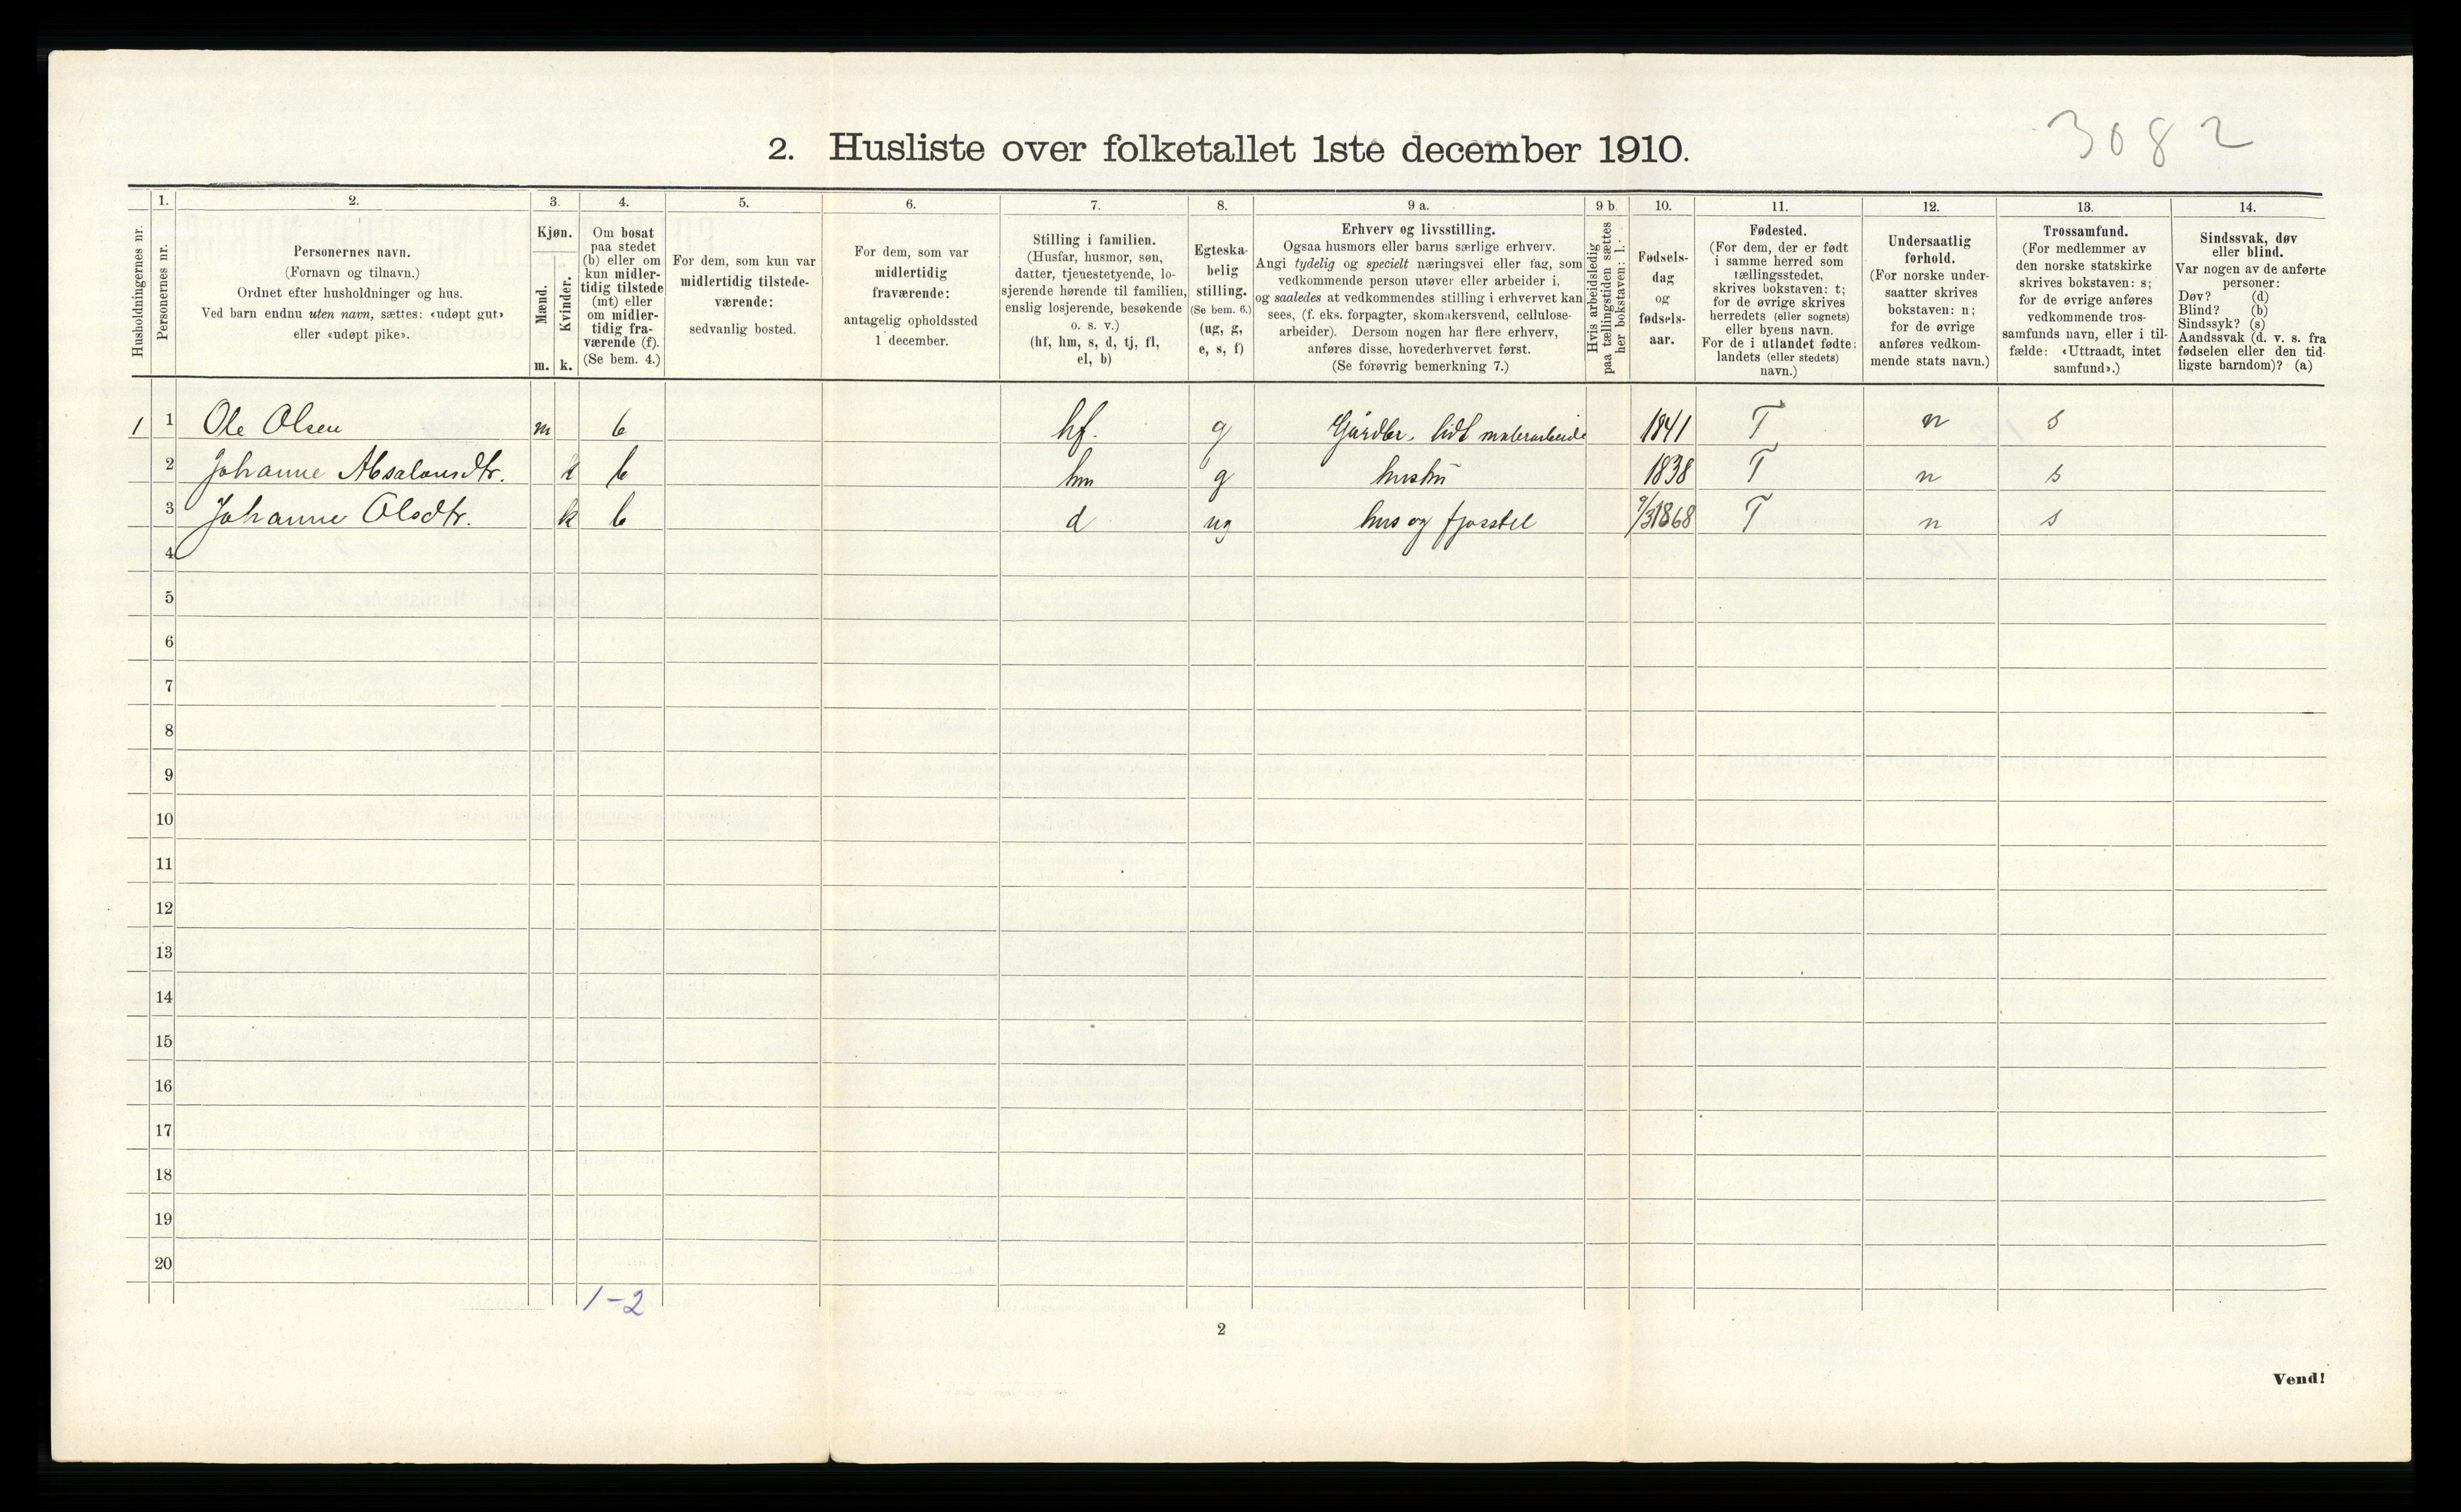 3082
2. Husliste over folketallet 1ste december 1910.
Husholdningernes nr.
1.
Personernes nr.
2.
Personernes navn.
(Fornavn og tilnavn.)
Ordnet efter husholdninger og hus.
Ved barn endnu uten navn, sættes: «udøpt gut»
eller «udøpt pike».
3.
Kjøn.
Mænd.
Kvinder.
m. k.
4.
Om bosat
paa stedet
(b) eller om
kun midler-
tidig tilstede
(mt) eller
om midler-
tidig fra-
værende (f).
(Se bem. 4.)
5.
For dem, som kun var
midlertidig tilstede-
værende:
sedvanlig bosted.
6.
For dem, som var
midlertidig
fraværende:
antagelig opholdssted
1 december.
7.
Stilling i familien.
(Husfar, husmor, søn,
datter, tjenestetyende, lo-
sjerende hørende til familien,
enslig losjerende, besøkende
o. s. v.)
(hf, hm, s, d, tj, fl,
el, b)
8.
Egteska-
belig
stilling.
(Se bem. 6.)
(ug, g,
e, s, f)
9 a.
Erhverv og livsstilling.
Ogsaa husmors eller barns særlige erhverv.
Angi tydelig og specielt næringsvei eller fag, som
vedkommende person utøver eller arbeider i,
og saaledes at vedkommendes stilling i erhvervet kan
sees, (f. eks. forpagter, skomakersvend, cellulose-
arbeider). Dersom nogen har flere erhverv,
anføres disse, hovederhvervet først.
(Se forøvrig bemerkning 7.)
9 b.
Hvis arbeidsledig
paa tællingstiden sættes
her bokstaven: l.
10.
Fødsels-
dag
og
fødsels-
aar.
11.
Fødested.
(For dem, der er født
i samme herred som
tællingsstedet,
skrives bokstaven: t;
for de øvrige skrives
herredets (eller sognets)
eller byens navn.
For de i utlandet fødte:
landets (eller stedets)
navn.)
12.
Undersaatlig
forhold.
(For norske under-
saatter skrives
bokstaven: n;
for de øvrige
anføres vedkom-
mende stats navn.)
13.
Trossamfund.
(For medlemmer av
den norske statskirke
skrives bokstaven: s;
for de øvrige anføres
vedkommende tros-
samfunds navn, eller i til-
fælde: «Uttraadt, intet
samfund».)
14.
Sindssvak, døv
eller blind.
Var nogen av de anførte
personer:
Døv? (d)
Blind? (b)
Sindssyk? (s)
Aandssvak (d. v. s. fra
fødselen eller den tid-
ligste barndom)? (a)
1 1 Ole Olsen m b hf. g Gårdbr. lidt malerarbeide 1841 T n s
2 Johanne Absalonsdtr. k b hm g hustru 1838 T n s
3 Johanne Olsdtr. k b d ug hus og fjosstel 9/3 1868 T n s
4
5
6
7
8
9
10
11
12
13
14
15
16
17
18
19
20
1-2
2
Vend!